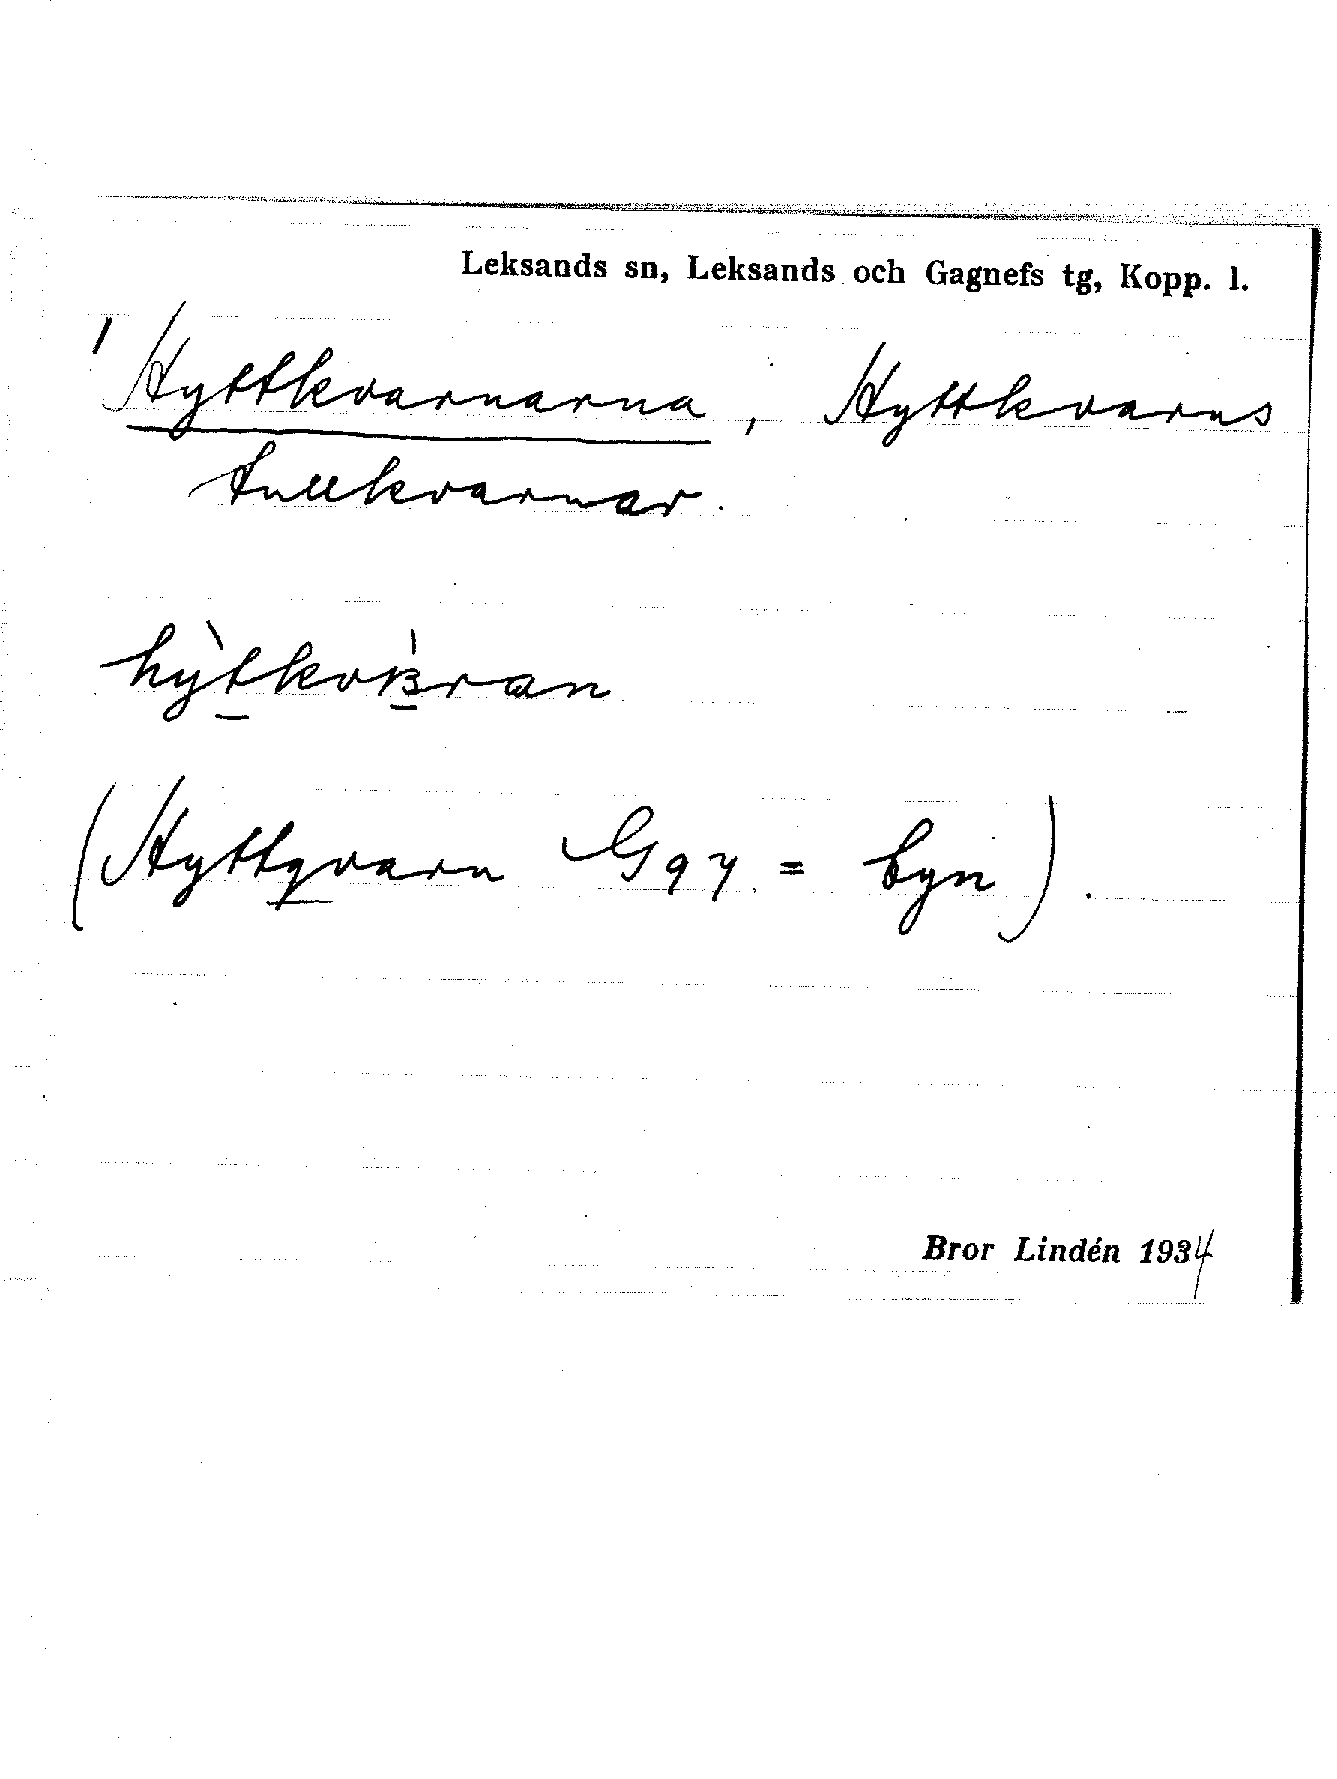 Leksands sn, Leksands och Gagnefs tg, Kopp. l.
/ Hyttkvarnarna, Hyttkvarns
tullkvarnar.
(Hyttqvarn G97 = byn).
Bror Lindén 1934